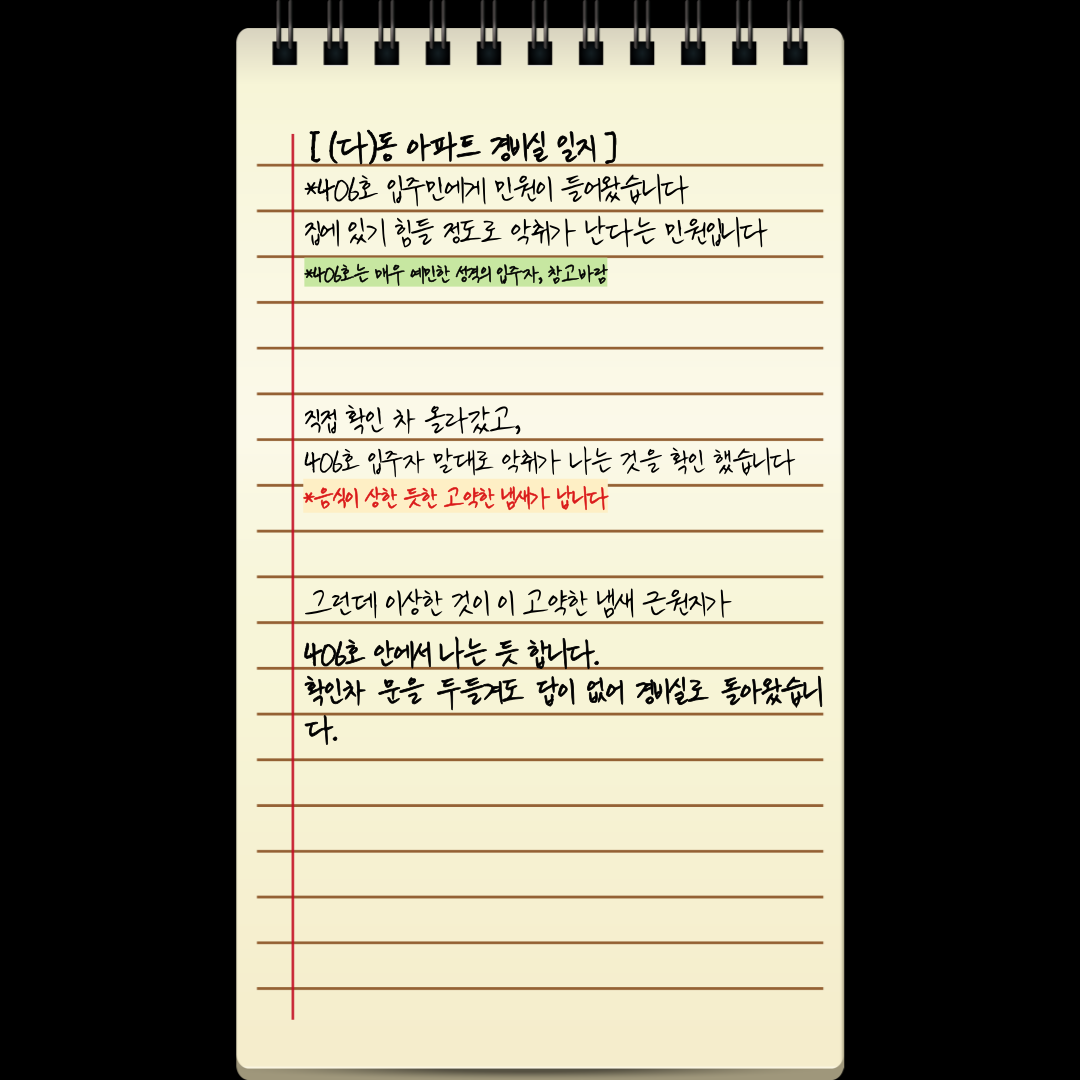 [ (다)동 아파트 경비실 일지 ]
*406호 입주민에게 민원이 들어왔습니다
집에 있기 힘들 정도로 악취가 난다는 민원입니다
*406호는 매우 예민한 성격의 입주자, 참고바람
직접 확인 차 올라갔고,
406호 입주자 말대로 악취가 나는 것을 확인 했습니다
*음식이 상한 듯한 고약한 냄새가 납니다
그런데 이상한 것이 이 고약한 냄새 근원지가
406호 안에서 나는 듯 합니다.
확인차 문을 두들겨도 답이 없어 경비실로 돌아왔습니
다.